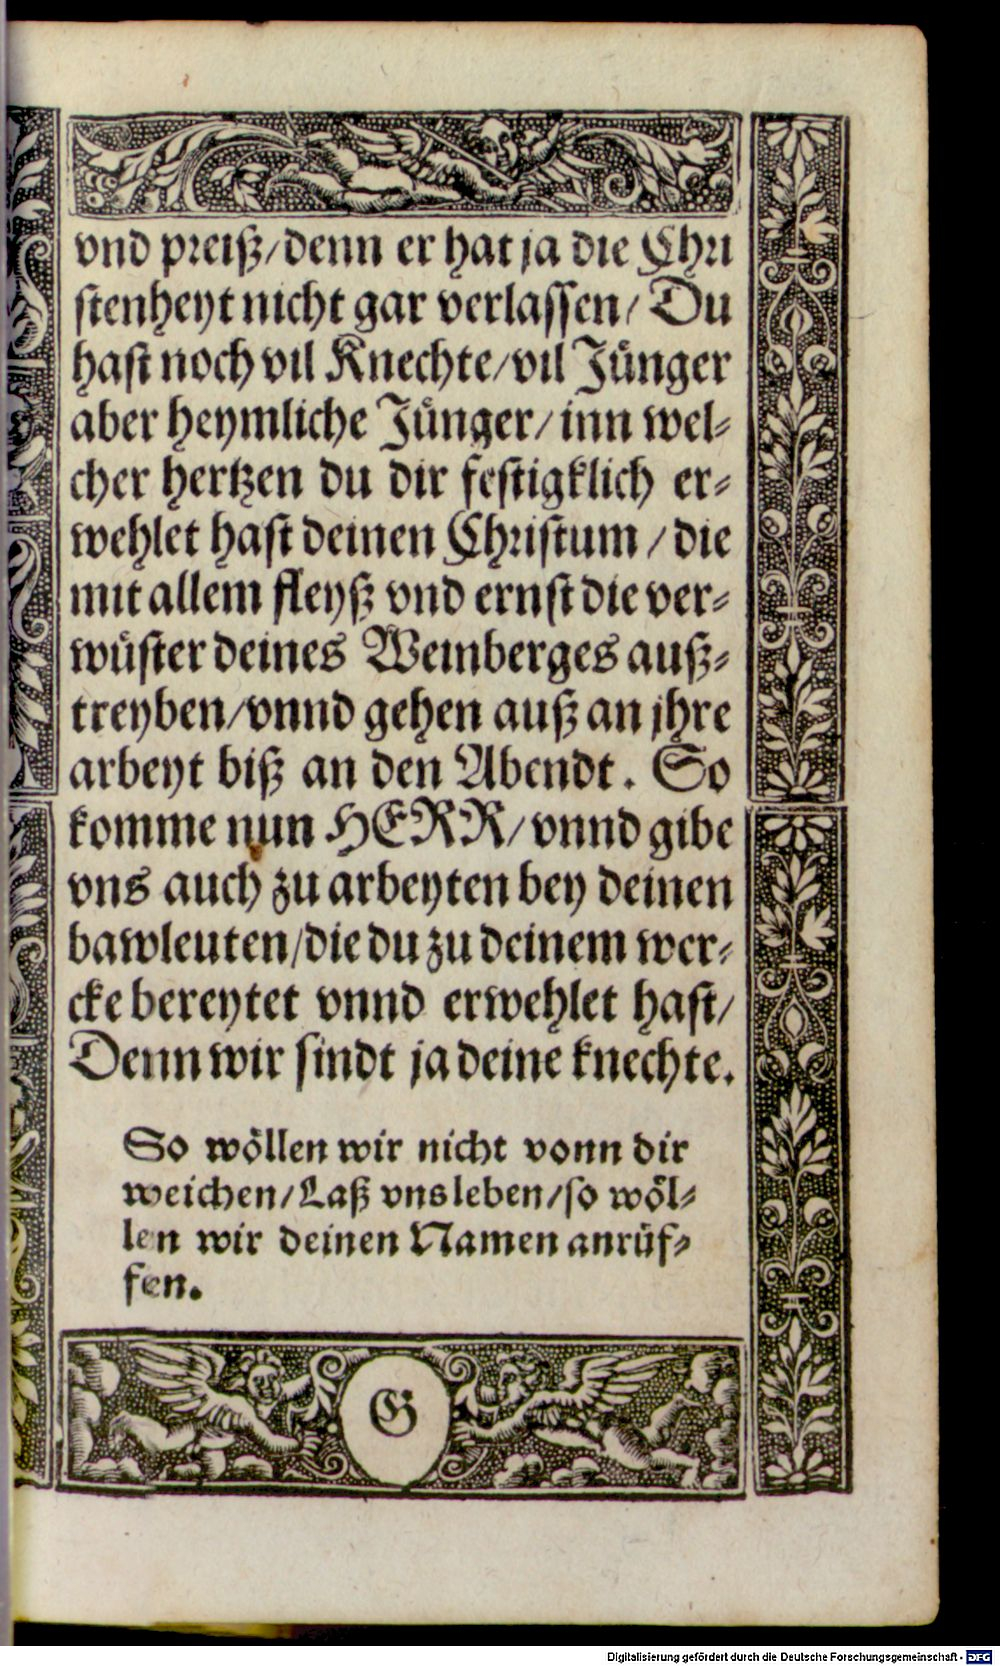 vnd preiß/denn er hat ja die Chri
stenheyt nicht gar verlassen/ Du
hast noch vil Knechte/vil Jünger
aber heymliche Jünger/ inn wel-
cher hertzen du dir festigklich er-
wehlet hast deinen Christum / die
mit allem fleyß vnd ernst die ver-
wüster deines Weinberges auß-
treyben/vnnd gehen auß an jhre
arbeyt biß an den Abendt. So
komme nun HERR/ vnnd gibe
vns auch zu arbeyten bey deinen
bawleuten/die du zu deinem wer-
cke bereytet vnnd erwehlet hast/
Denn wir sindt ja deine knechte.
So wöllen wir nicht vonn dir
weichen/Laß vns leben/so wöl-
len wir deinen Namen anrüf-
fen.
G
Digitalisierung gefördert durch die Deutsche Forschungsgemeinschaft - DFG